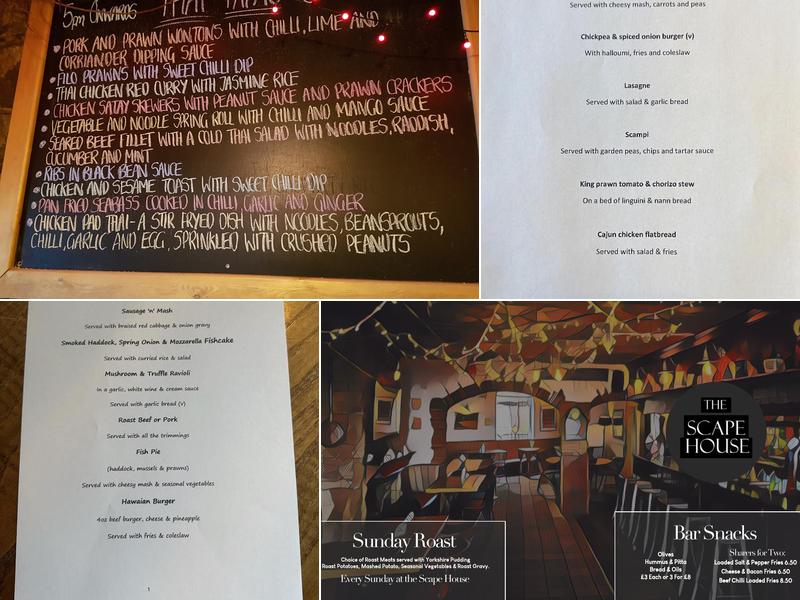 5pm ONWARDS THAI TAPAS
PORK AND PRAWN WONTONS WITH CHILLI, LIME AND
CORRIANDER DIPPING SAUCE
FILO PRAWNS WITH SWEET CHILLI DIP
THAI CHICKEN RED CURRY WITH JASMINE RICE
CHICKEN SATAY SKEWERS WITH PEANUT SAUCE AND PRAWN CRACKERS
VEGETABLE AND NOODLE SPRING ROLL WITH CHILLI AND MANGO SAUCE
SEARED BEEF FILLET WITH A COLD THAI SALAD WITH NOODLES, RADDISH,
CUCUMBER AND MINT
RIBS IN BLACK BEAN SAUCE
CHICKEN AND SESAME TOAST WITH SWEET CHILLI DIP
PAN FRIED SEABASS COOKED IN CHILLI, GARLIC AND GINGER
CHICKEN PAD THAI - A STIR FRYED DISH WITH NOODLES, BEANSPROUTS,
CHILLI, GARLIC AND EGG, SPRINKLED WITH CRUSHED PEANUTS
Served with cheesy mash, carrots and peas
Chickpea & spiced onion burger (v)
With halloumi, fries and coleslaw
Lasagne
Served with salad & garlic bread
Scampi
Served with garden peas, chips and tartar sauce
King prawn tomato & chorizo stew
On a bed of linguini & nann bread
Cajun chicken flatbread
Served with salad & fries
Sausage 'n' Mash
Served with braised red cabbage & onion gravy
Smoked Haddock, Spring Onion & Mozzarella Fishcake
Served with curried rice & salad
Mushroom & Truffle Ravioli
in a garlic, white wine & cream sauce
Served with garlic bread (v)
Roast Beef or Pork
Served with all the trimmings
Fish Pie
(haddock, mussels & prawns)
Served with cheesy mash & seasonal vegetables
Hawaian Burger
4oz beef burger, cheese & pineapple
Served with fries & coleslaw
1
THE
SCAPE
HOUSE
Sunday Roast
Choice of Roast Meats served with Yorkshire Pudding
Roast Potatoes, Mashed Potato, Seasonal Vegetables & Roast Gravy.
Every Sunday at the Scape House
Bar Snacks
Olives
Hummus & Pitta
Bread & Oils
£3 Each or 3 For £8
Sharers for Two:
Loaded Salt & Pepper Fries 6.50
Cheese & Bacon Fries 6.50
Beef Chilli Loaded Fries 8.50